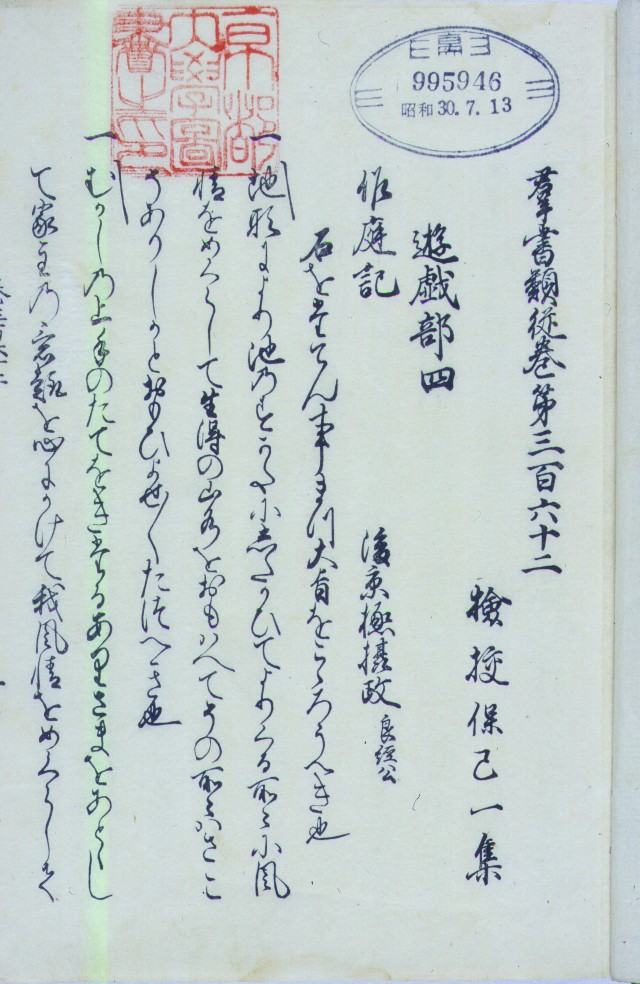 995946
昭和30.7.13
京都
大學圖
書之印
羣書類従巻第三百六十二
檢挍保己一集
遊戯部四
作庭記
後京極摂政良経公
石をたてん事まつ大旨をこゝろうへき也
一地形により池のすかたにしたかひてよりくる所々に風
情をめくらして生得の山水をおもはへてその所々はさこ
そありしかとおもひよせ〳〵たつへき也
一むかしの上手のたてをきたるありさまをあとゝし
て家主の意趣を心にかけて我風情をめくらして